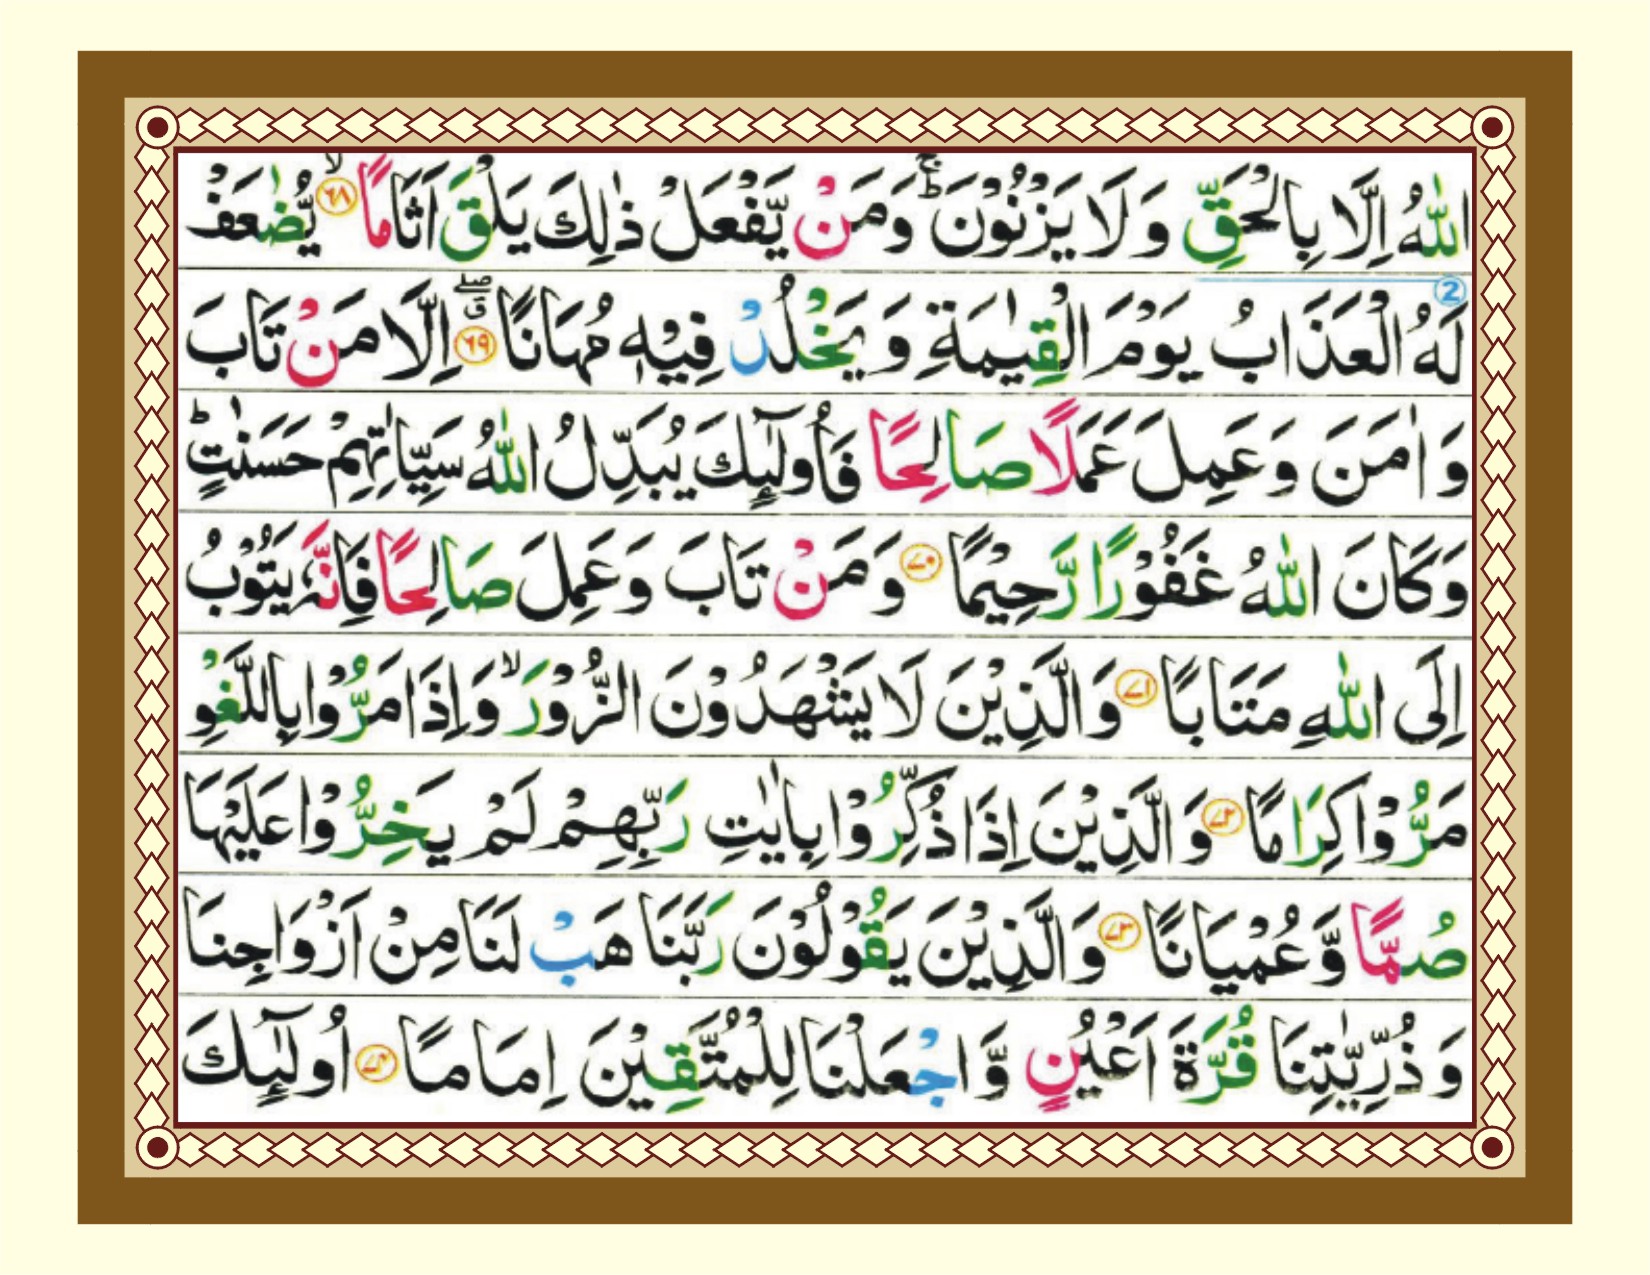 اللّٰهُ اِلَّا بِالْحَقِّ وَ لَا يَزْنُوْنَ ۚؕ وَ مَنْ يَّفْعَلْ ذٰلِكَ يَلْقَ اَثَامًا ۙ‏﴿۶۸﴾ يُّضٰعَفْ
2
لَهُ الْعَذَابُ يَوْمَ الْقِيٰمَةِ وَ يَخْلُدْ فِيْهٖ مُهَانًا ۖۗ‏﴿۶۹﴾ اِلَّا مَنْ تَابَ
وَ اٰمَنَ وَ عَمِلَ عَمَلًا صَالِحًا فَاُولٰٓئِكَ يُبَدِّلُ اللّٰهُ سَيِّاٰتِهِمْ حَسَنٰتٍ ؕ
وَ كَانَ اللّٰهُ غَفُوْرًا رَّحِيْمًا ﴿۷۰﴾ وَ مَنْ تَابَ وَ عَمِلَ صَالِحًا فَاِنَّهٗ يَتُوْبُ
اِلَى اللّٰهِ مَتَابًا ﴿۷۱﴾ وَ الَّذِيْنَ لَا يَشْهَدُوْنَ الزُّوْرَ ۙ وَ اِذَا مَرُّوْا بِاللَّغْوِ
مَرُّوْا كِرَامًا ﴿۷۲﴾ وَ الَّذِيْنَ اِذَا ذُكِّرُوْا بِاٰيٰتِ رَبِّهِمْ لَمْ يَخِرُّوْا عَلَيْهَا
صُمًّا وَّ عُمْيَانًا ﴿۷۳﴾ وَ الَّذِيْنَ يَقُوْلُوْنَ رَبَّنَا هَبْ لَنَا مِنْ اَزْوَاجِنَا
وَ ذُرِّيّٰتِنَا قُرَّةَ اَعْيُنٍ وَّ اجْعَلْنَا لِلْمُتَّقِيْنَ اِمَامًا ﴿۷۴﴾ اُولٰٓئِكَ